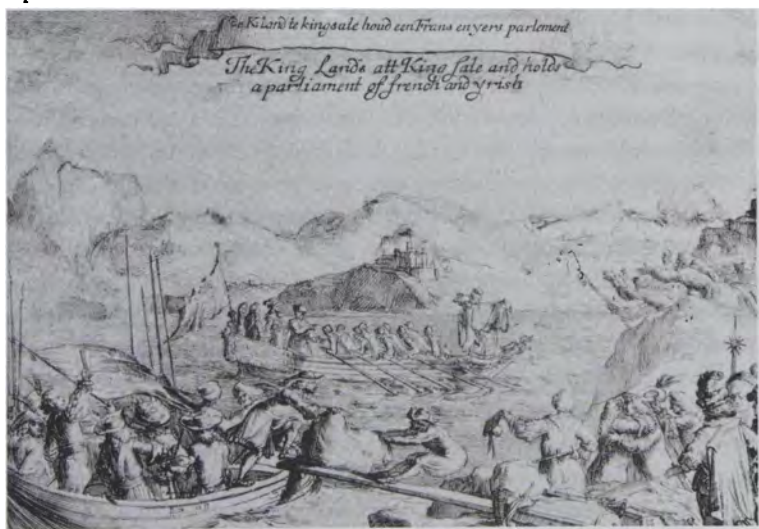 te kingsale houd een Frans en yers parlement
The King Lands att King sale and holds
a parliament of french and yrish